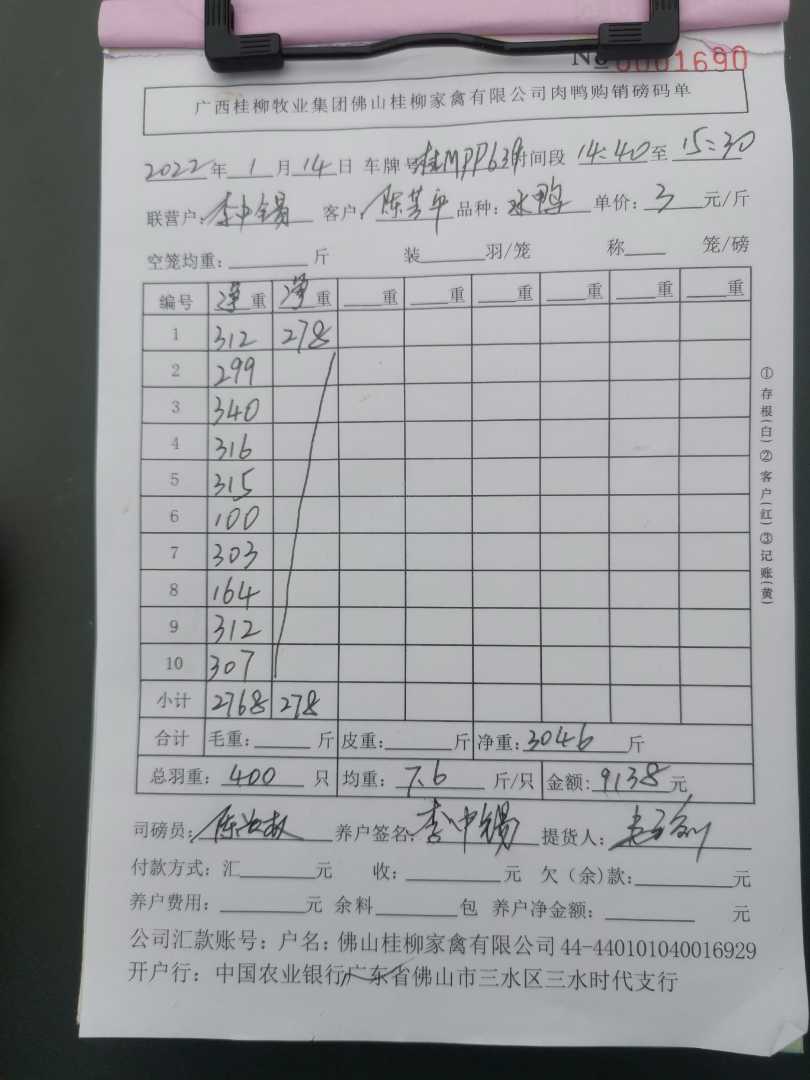 № 0001690
广西桂柳牧业集团佛山桂柳家禽有限公司肉鸭购销磅码单
2022年1月14日 车牌号:桂MPP639 时间段 14:40至15:30
联营户:李中锡 客户:陈芳平 品种:水鸭 单价:3元/斤
空笼均重:____斤 装____羽/笼 称____笼/磅
编号 净重 净重 ____重 ____重 ____重 ____重 ____重 ____重
1 312 278
2 299
3 340
4 316
5 315
6 100
7 303
8 164
9 312
10 307
小计 2768 278
合计 毛重:____斤 皮重:____斤 净重:3046斤
总羽重:400只 均重:7.6斤/只 金额:9138元
司磅员: 养户签名:李中锡 提货人:
付款方式:汇____元 收:____元 欠(余)款:____元
养户费用:____元 余料____包 养户净金额:____元
公司汇款账号:户名:佛山桂柳家禽有限公司44-440101040016929
开户行:中国农业银行广东省佛山市三水区三水时代支行
①存根(白)②客户(红)③记账(黄)